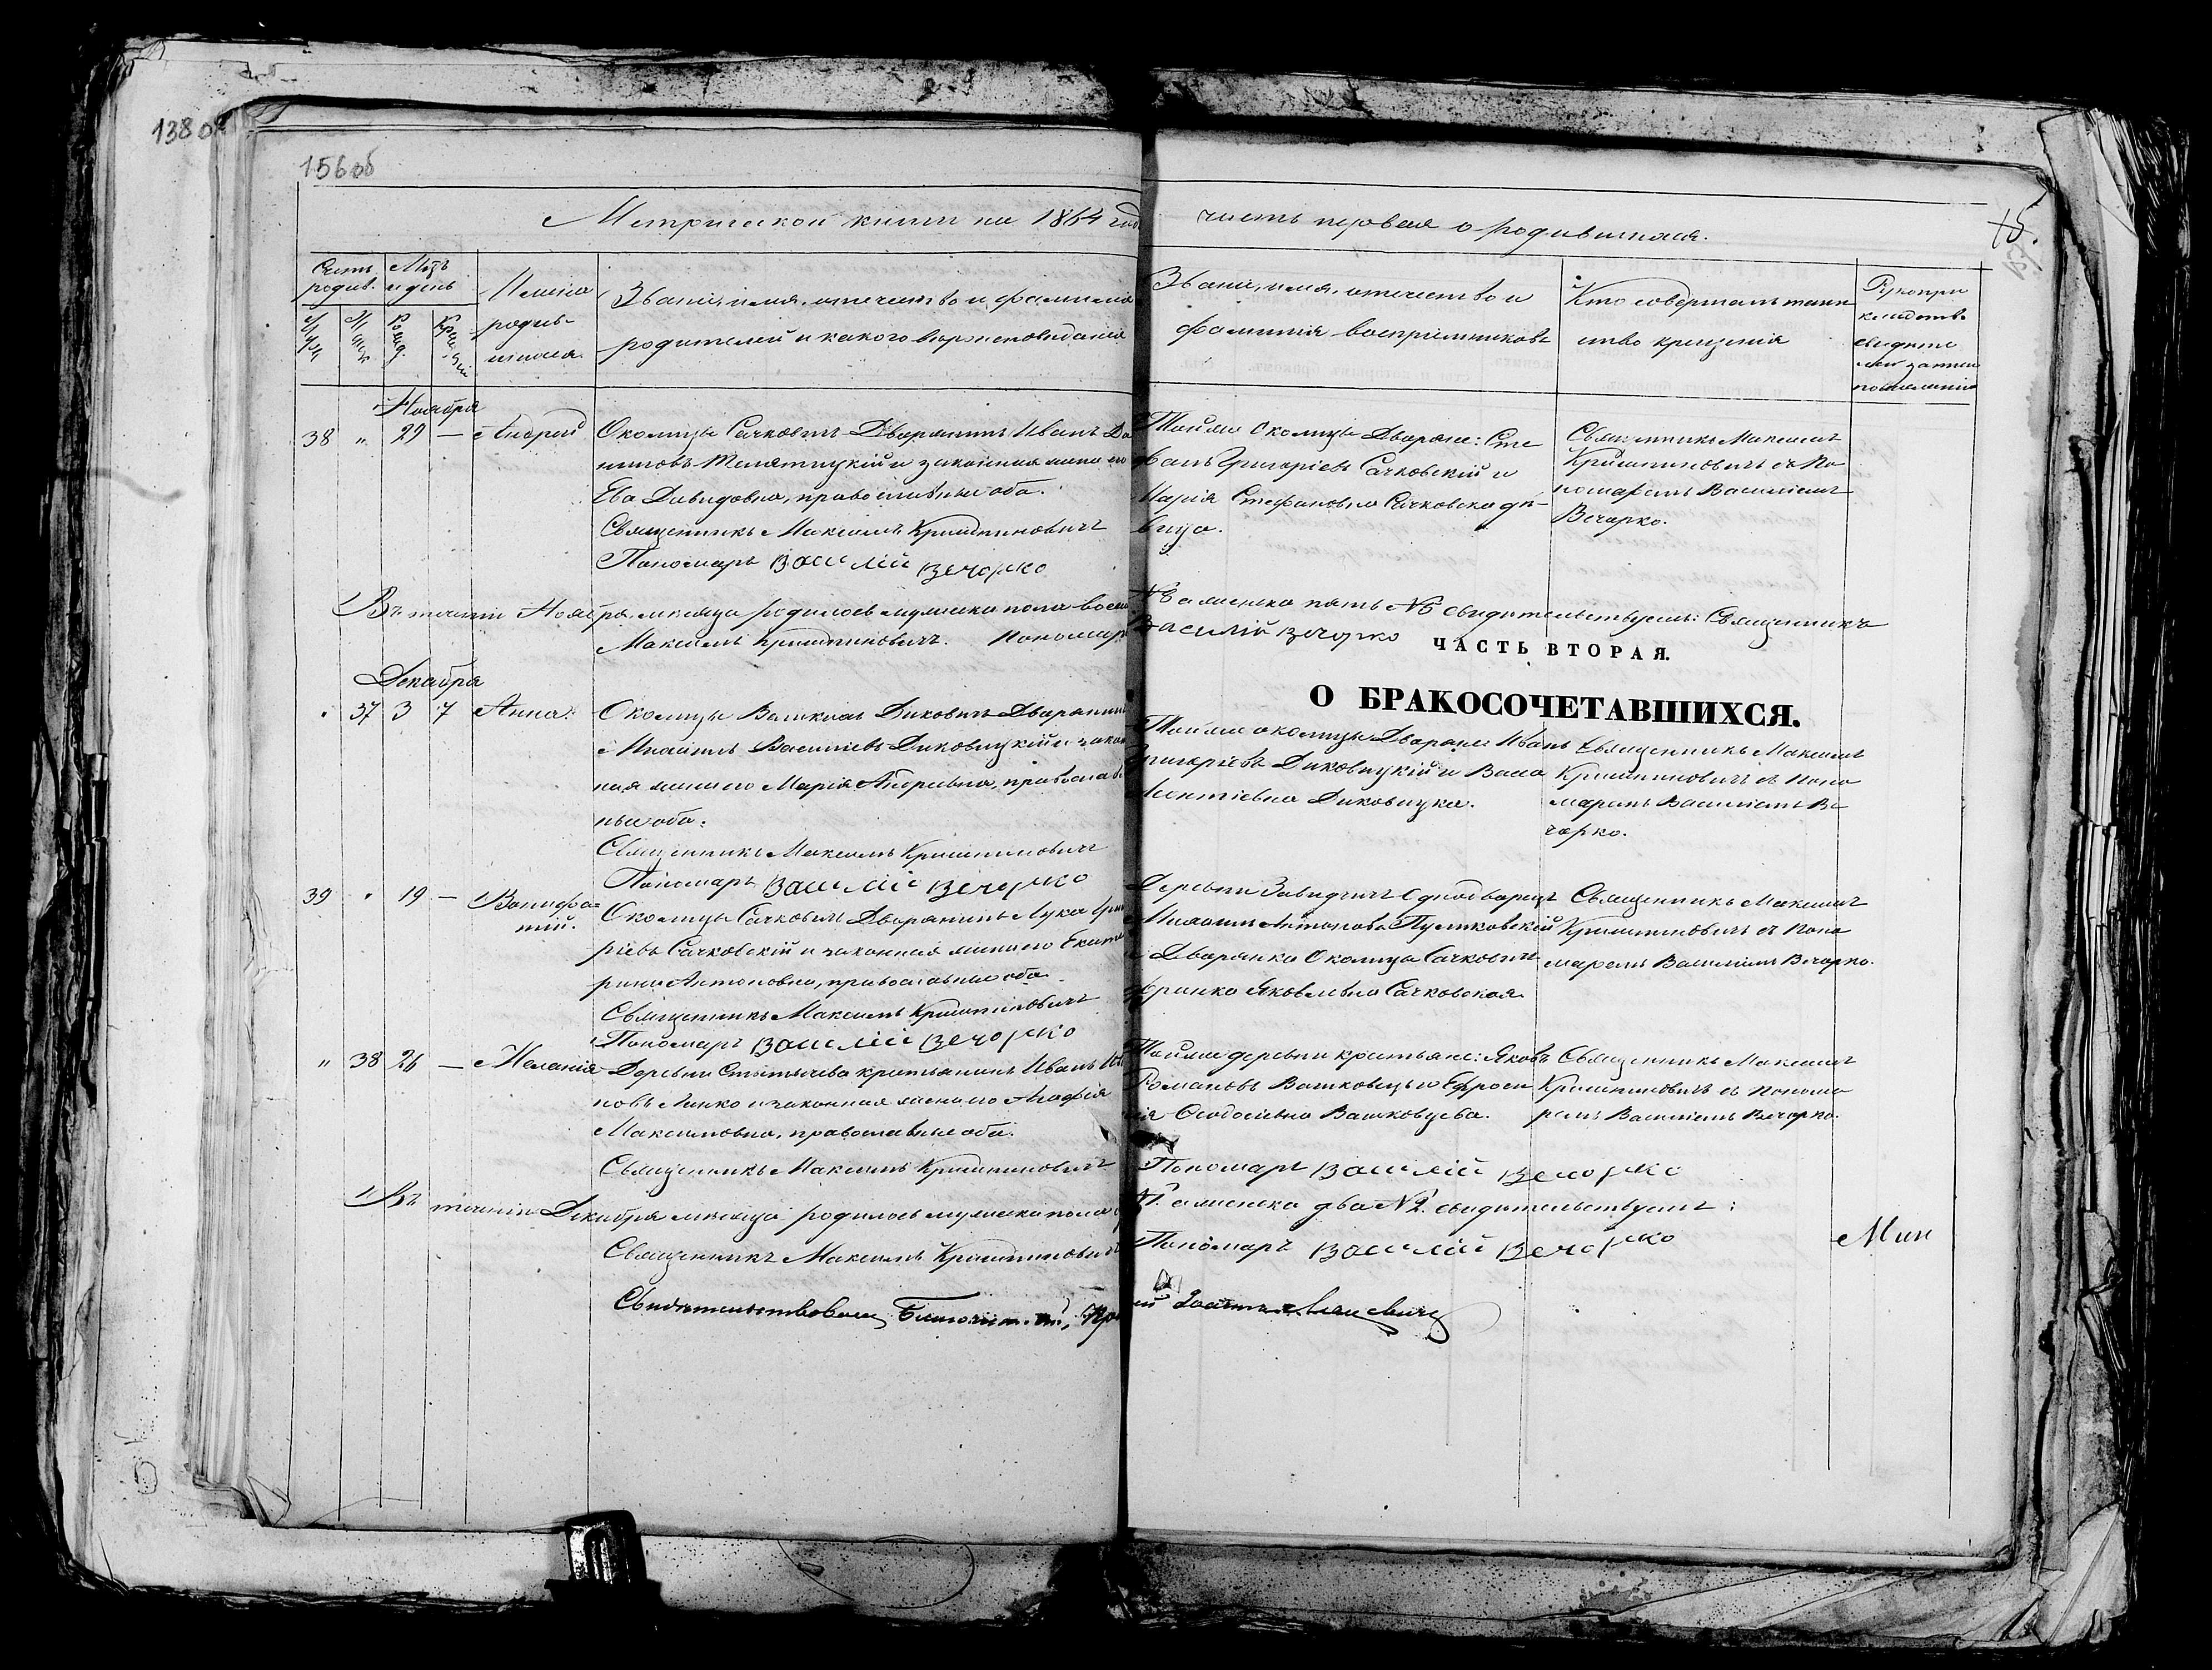 138 об
156 об
15.
Метрической книги на 1864 год
часть первая о родившихся.
Счетъ родив.
Мѣз. и день
Имена родившихся.
Званіе, имя, отечество и фамилія
родителей и какого вѣроисповѣданія
Званіе, имя, отечество и
фамилія воспріемниковъ
Кто совершалъ таин
ство крещенія
Рукопри
кладство
свидѣте
лей записи
по желанію
Ноября
38 " 29 — Андрей
Околицы Сачковичъ Дворянинъ Иванъ
Телятицкій и законная жена его
Ева Давидовна, православные оба.
Священникъ Максимъ Криштиновичъ
Пономарь Василій Вечорко
Тойже околицы Дворяне: Сте
фанъ Григорьевъ Сачковскій и
Марія Стефановна Сачковска дѣ-
вица.
Священникъ Максимъ
Криштиновичъ съ По
номаремъ Василіемъ
Вечорко.
Въ теченіи Ноября мѣсяца родилось мужеска пола
№8 а женска пять №5 свидѣтельствуемъ: Священникъ
Максимъ Криштиновичъ. Пономарь
Василій Вечорко
ЧАСТЬ ВТОРАЯ.
О БРАКОСОЧЕТАВШИХСЯ.
Декабря
" 37 3 7 Анна.
Околицы Вашкихъ Диковичъ Дворянинъ
Михаилъ Василіевъ Диковицкій и закон
ная жена его Марія Андреевна, православ
ные оба.
Священникъ Максимъ Криштиновичъ
Пономарь Василій Вечорко
Тойже околицы Дворяне Иванъ
Григорьевъ Диковицкій и
Леонтіевна Диковицка.
Священникъ Максимъ
Криштиновичъ съ Поно
маремъ Василіемъ Ве
чорко.
39 " 19 — Вонифа-
тій.
Околицы Сачковичъ Дворянинъ Лука Григо
рьевъ Сачковскій и законная жена его Екате
рина Антоновна, православные оба.
Священникъ Максимъ Криштиновичъ
Пономарь Василій Вечорко
Деревни Завидчичъ Однодворецъ
Михаилъ Антоновъ Пульковскій
и Дворянка Околицы Сачковичъ
Франка Яковлевна Сачковская.
Священникъ Максимъ
Криштиновичъ съ Поно
маремъ Василіемъ Вечорко.
" 38 26 — Меланія
Деревни Стытычева крестьянинъ Иванъ
новъ Линко и законная жена его Агафія
Максимовна, православные оба.
Священникъ Максимъ Криштиновичъ
Пономарь Василій Вечорко
Тойже деревни крестьяне: Яковъ
Романовъ Вашковецъ и Ефроси
нія Ѳеодосіевна Вашковцева.
Священникъ Максимъ
Криштиновичъ съ Понома
ремъ Василіемъ Вечорко.
Въ теченіи Декабря мѣсяца родилось мужеска пола
а женска два №2. свидѣтельствуемъ:
Священникъ Максимъ Криштиновичъ
Пономарь Василій Вечорко
Мин
Свидѣтельствовалъ Благочинный,